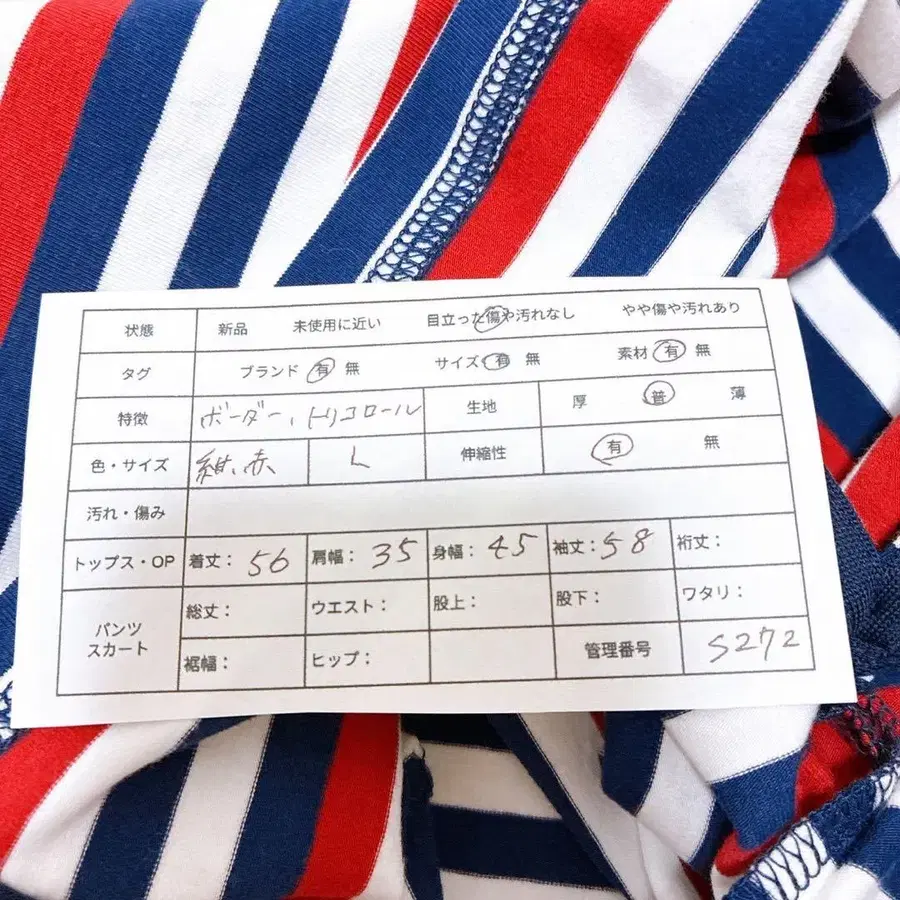 状態 新品 未使用に近い 目立った傷や汚れなし やや傷や汚れあり
タグ ブランド 有 無 サイズ 有 無 素材 有 無
特徴 ボーダー、トリコロール 生地 厚 普 薄
色・サイズ 紺、赤 L 伸縮性 有 無
汚れ・傷み
トップス・OP 着丈：56 肩幅：35 身幅：45 袖丈：58 裄丈：
パンツ スカート 総丈： ウエスト： 股上： 股下： ワタリ：
裾幅： ヒップ： 管理番号 S272